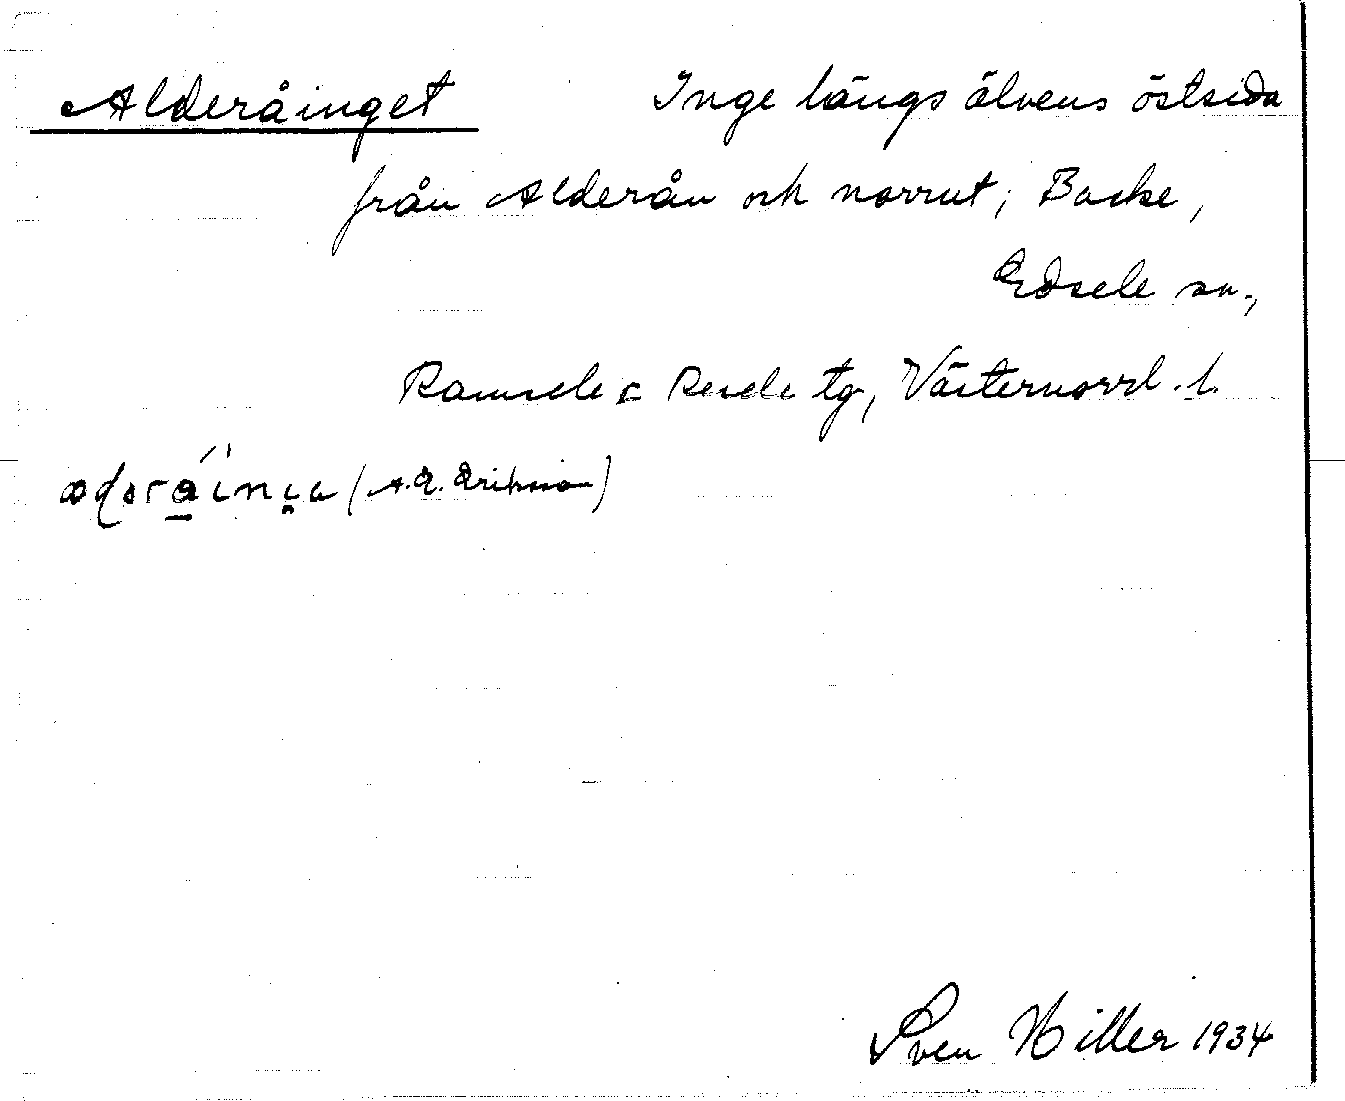 Alderåinget Inge längs älvens östsida
från Alderån och norrut; Backe,
Edsele sn.,
Ramsele o Resele tg, Västernorrl. l.
(A. E. Eriksson)
Sven Hiller 1934